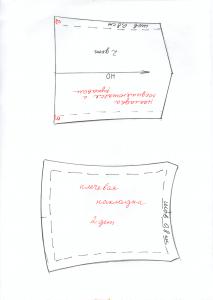 шов 0,8 см
2 дет
НО
накладка
соединяющаяся с
рукавом
плечевая
накладка
2 дет
шов 0,8 см